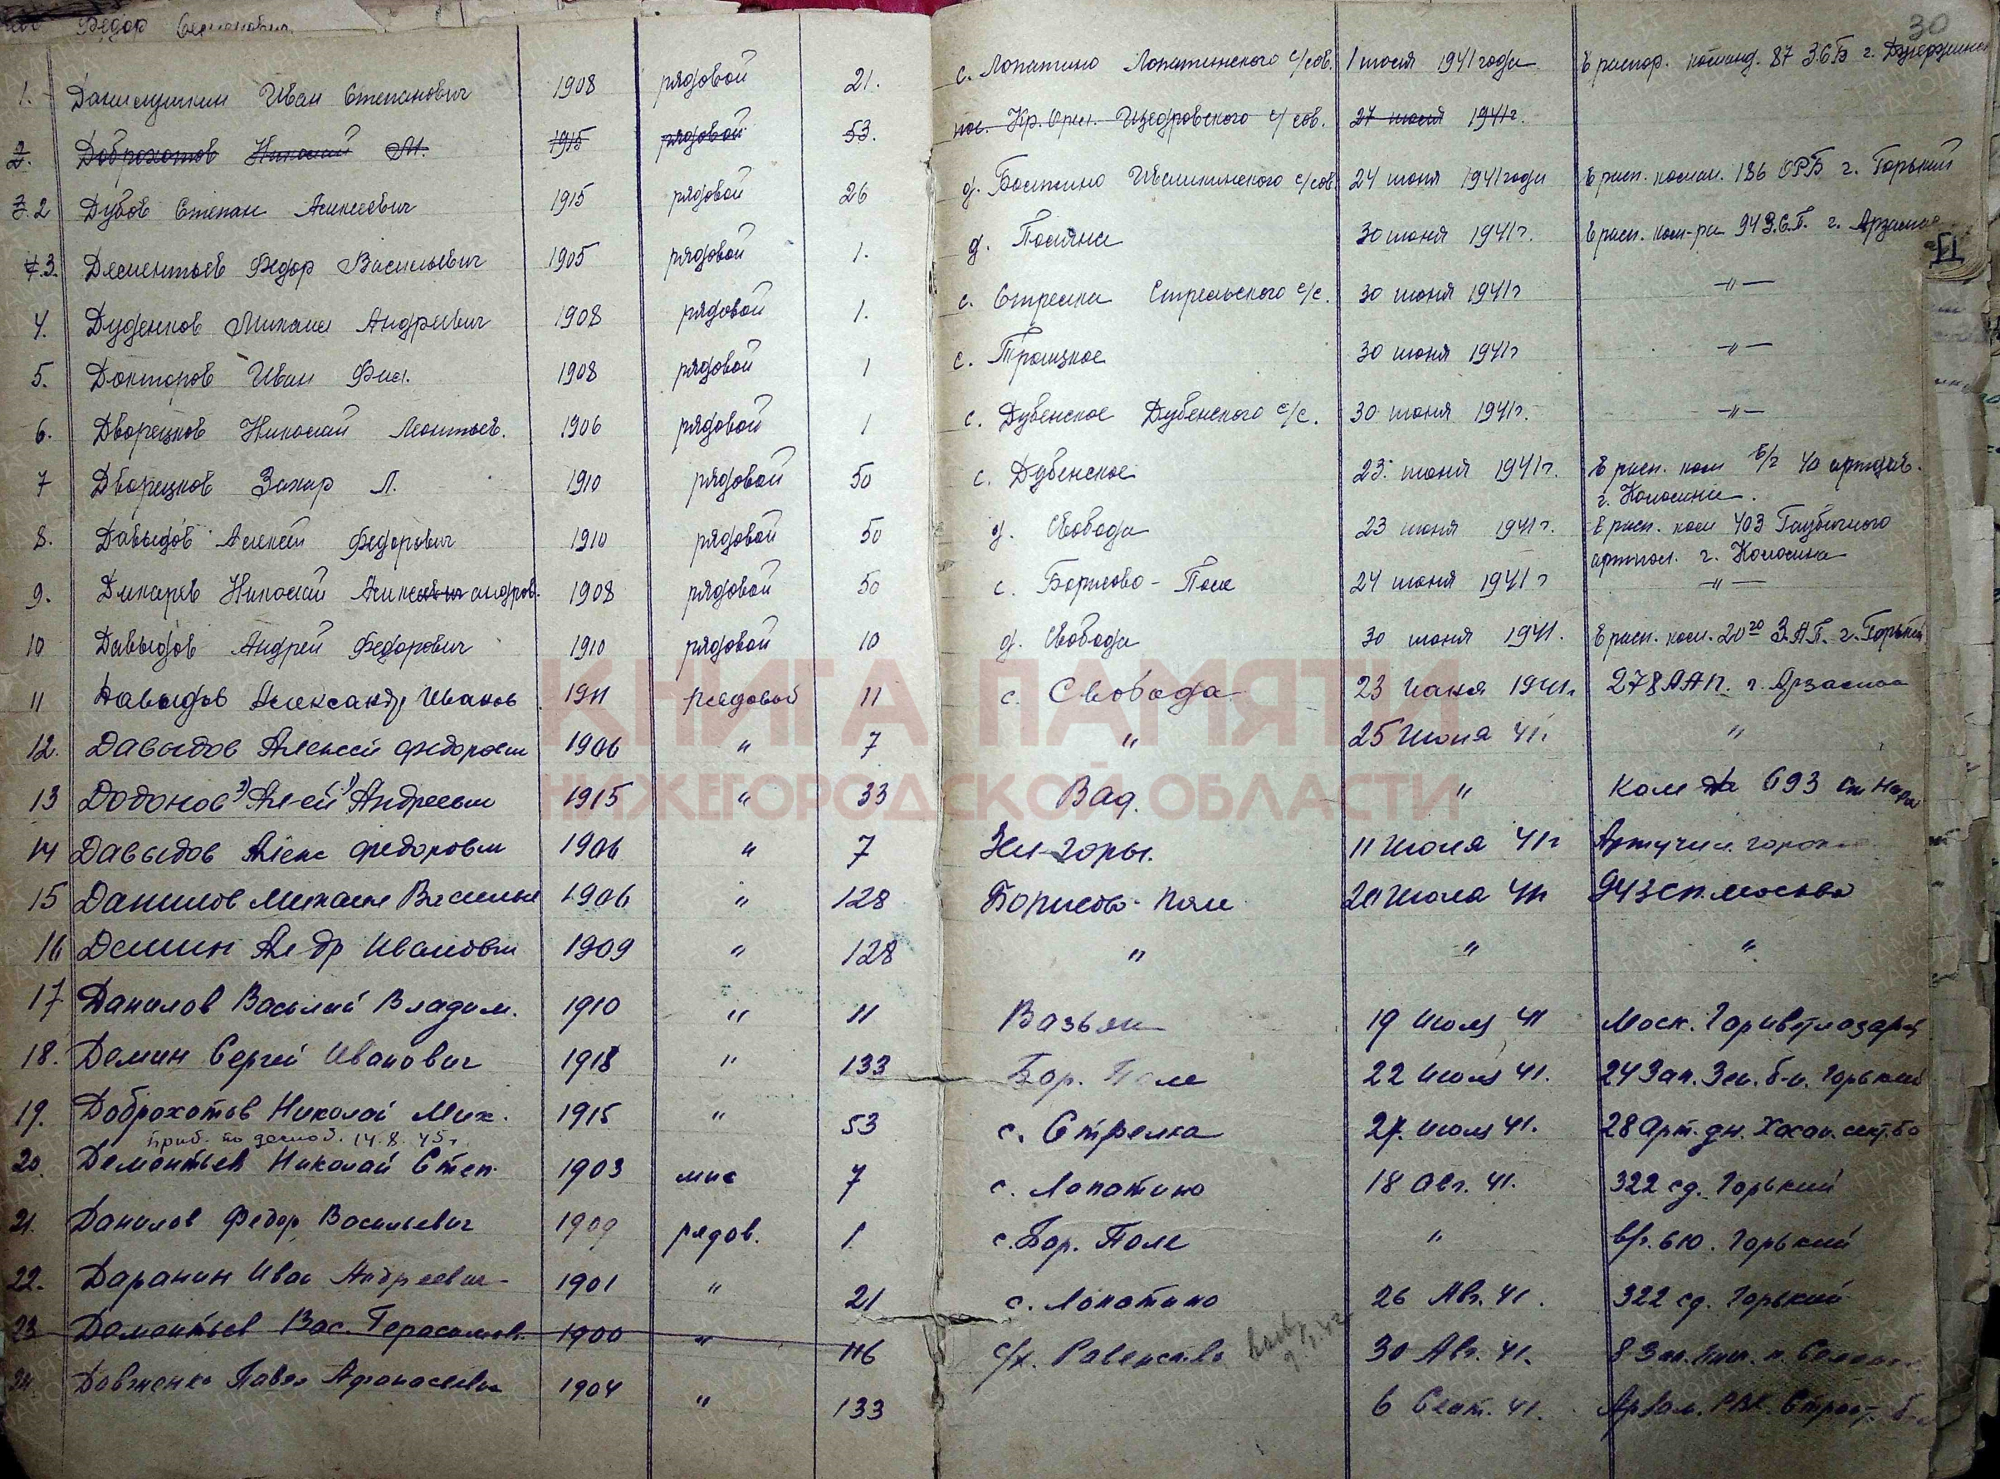 Федор Семенович
30
1. Данилушкин Иван Степанович 1908 рядовой 21. с. Лопатино Лопатинского с/сов. 1 июля 1941 года В распор. команд. 87 ЗСБ г. Дзержинск
2. Доброхотов Николай М. 1915 рядовой 53. пос. Кр. Орл. Щедровского с/сов. 27 июля 1941г.
3. 2 Дубов Степан Алексеевич 1915 рядовой 26 д. 24 июня 1941 года В расп. коман. 186 ОРБ г. Горький
4. 3. Дементьев Федор Васильевич 1905 рядовой 1. д. Поляна 30 июня 1941г. В расп. ком-ра 94 З.С.П. г. Арзамас
Д
4. Дуденков Михаил Андреевич 1908 рядовой 1. с. Стрелка Стрельского с/с. 30 июня 1941г —"—
5. Докторов Иван Фил. 1908 рядовой 1 с. Троицкое 30 июня 1941г —"—
6. Дворецков Николай Леонтьев. 1906 рядовой 1 с. Дубенское Дубенского с/с. 30 июня 1941г. —"—
7 Дворецков Захар Л. 1910 рядовой 50 с. Дубенское 23 июня 1941г. В расп. ком в/ч 40
г. Коломна.
8. Давыдов Алексей Федорович 1910 рядовой 50 д. Свобода 23 июня 1941г. В расп. ком 403 Гаубичного
артпол. г. Коломна
9. Дикарев Николай Александров. 1908 рядовой 50 с. Борисово-Поле 24 июня 1941г —"—
10 Давыдов Андрей Федорович 1910 рядовой 10 д. Свобода 30 июня 1941. В расп. ком. 20го З.А.П. г. Горький
КНИГА ПАМЯТИ
11 Давыдов Александр Иванов 1911 рядовой 11 с. Свобода 23 июня 1941г. 278 ААП. г. Арзамас
12. Давыдов Алексей Федорович 1906 " 7 " 25 июня 41г. "
НИЖЕГОРОДСКОЙ ОБЛАСТИ
13 Додонов Алей Андреевич 1915 " 33 Вад. " Ком 693
14 Давыдов Алекс Федорович 1906 " 7 Зел-Горы. 11 июля 41г
15 Данилов Михаил Василье 1906 " 128 Борисово-Поле 20 июля 41г 94 ЗСП. Москва
16 Демин Ал-др Иванович 1909 " 128 " " "
17 Данилов Василий Владим. 1910 " 11 Вазьян 19 июля 41 Моск.
18. Демин Сергей Иванович 1918 " 133 Бор. Поле 22 июля 41. 24 Зап. Зен. б-н. Горький
19. Доброхотов Николай Мих. 1915 " 53 с. Стрелка 27. июля 41. 28 Арт. дн.
приб. по демоб. 14.8.45г
20. Дементьев Николай Степ. 1903 7 с. Лопатино 18 Авг. 41. 322 сд. Горький
21. Данилов Федор Васильевич 1909 рядов. 1. с. Бор. Поле " Горький
22. Даранин Иван Андреевич 1901 " 21 с. Лопатино 26 Авг. 41. 322 сд. Горький
23 Дементьев Вас. Герасимов. 1900 " 116 30 Авг. 41. 8 Зап.
24. Довженко Павел Афанасьевич 1904 " 133 6 Сент. 41. РВК.